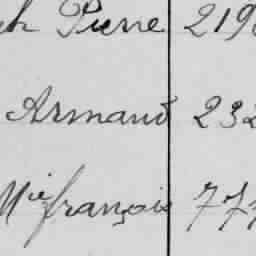 Pierre 219
Armand 232
Mie françois 777